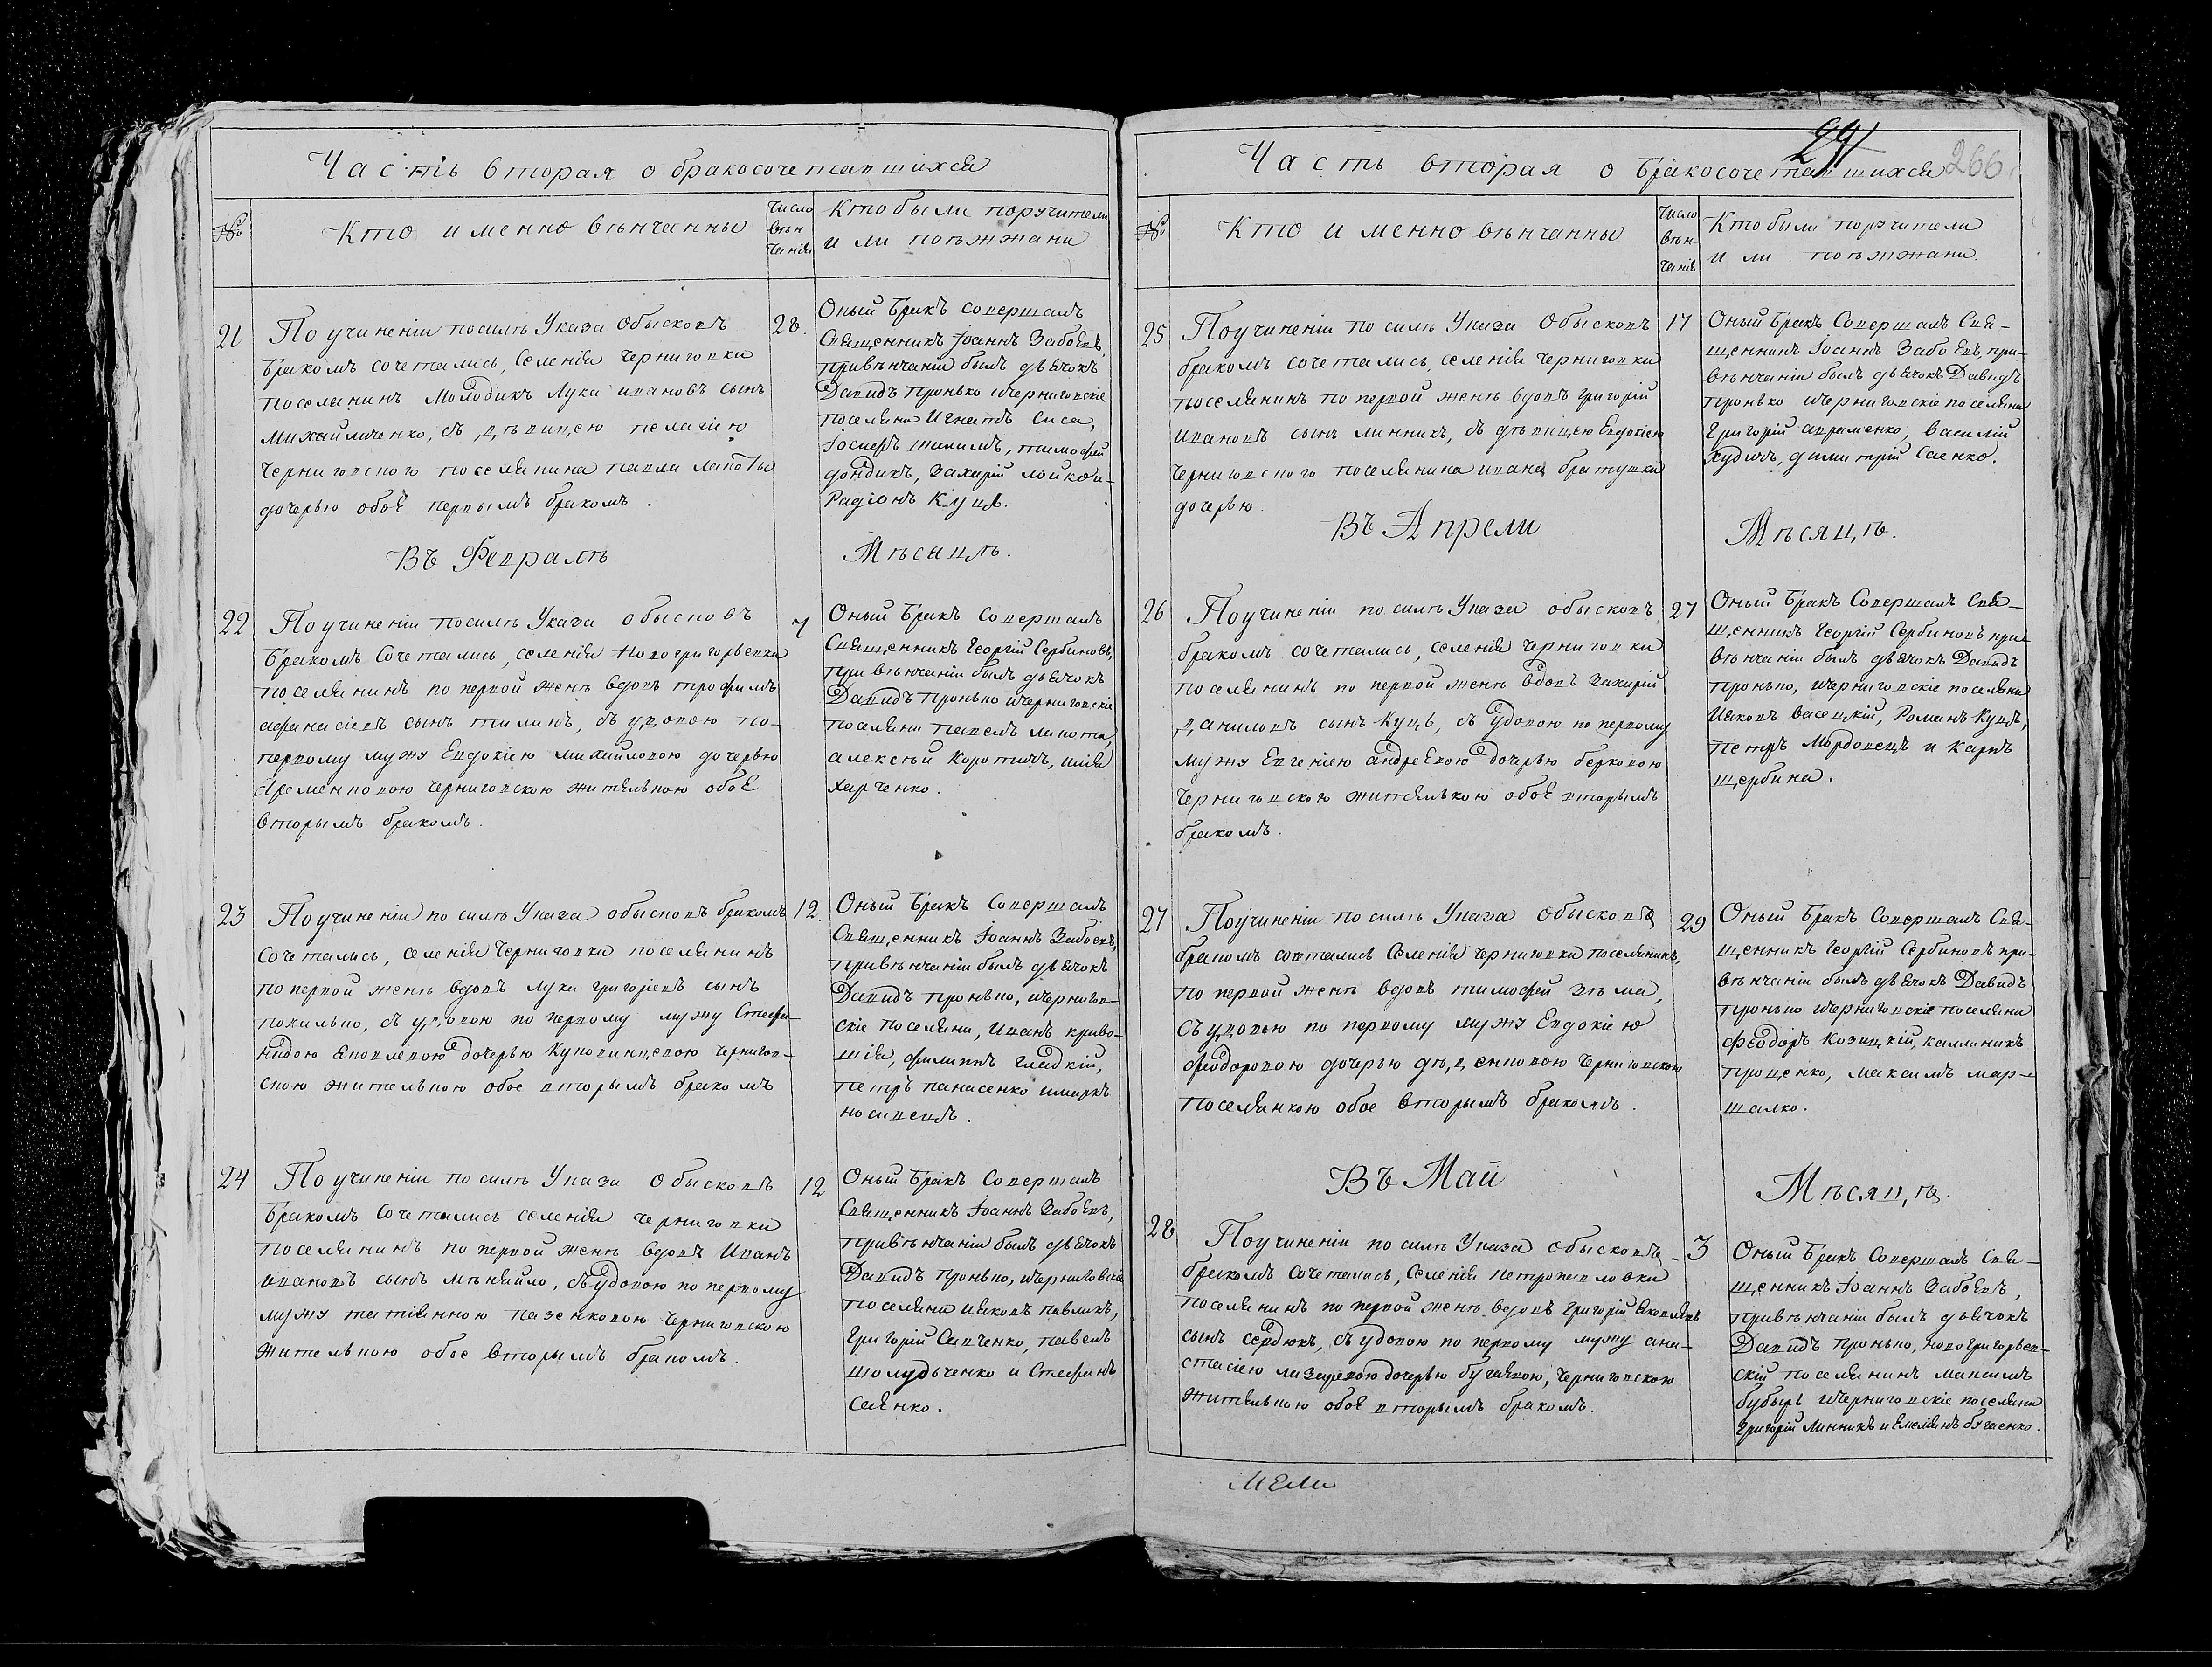 Часть вторая о бракосочетавшихся
№
Кто именно вѣнчанны
Число вѣнчанія
Кто были поручители
или поѣжжани
21
По учиненіи посилѣ Указа обысковъ
бракомъ сочетались, селенія Черниговки
поселянинъ Молодикъ Лука ивановъ сынъ
михайличенко, съ дѣвицею пелагіею
Черниговского поселянина павла лапоты
дочерью обоѐ первымъ бракомъ.
28.
Оный бракъ совершалъ
Священникъ Іоаннъ Забоевъ,
привѣнчаніи былъ дьячокъ
Давидъ Пронько ичерниговскіе
поселяна Игнатъ Сиса,
Іосифъ шилимъ, тимофей
дондикъ, Захарій лойко и
Радіонъ Куцъ.
Въ Февралѣ
Мѣсяцѣ.
22
По учиненіи посилѣ Указа обысковъ
бракомъ Сочетались, селенія Новогригорьевки
поселянинъ по первой женѣ вдовъ трофимъ
афанасіевъ сынъ тилинъ, съ удовою по
первому мужу Евдокіею михайловою дочерью
Яременковою черниговскою жителькою обоѐ
вторымъ бракомъ.
7
Оный бракъ Совершалъ
Священникъ Георгій Сербиновъ,
при вѣнчаніи былъ дьячокъ
Давидъ Пронько ичерниговскіе
поселяни павелъ лапота,
алексѣй коротичъ, илія
харченко.
23
По учиненіи по силѣ Указа обысковъ бракомъ
сочетались, селенія Черниговки поселянинъ
по первой женѣ вдовъ лука григоріевъ сынъ
покилько, съ удовою по первому мужу Стефа-
нидою Яковлевою дочерью Куковинцевою чернигов-
скою жителькою обое вторымъ бракомъ
12.
Оный бракъ Совершалъ
Священникъ Іоаннъ Забоевъ,
привѣнчаніи былъ дьячокъ
Давидъ пронько, ичернигов-
скіе поселяни, иванъ криво-
шія, филиппъ гладкій,
петръ панасенко имаркъ
носивецъ.
24
По учиненіи по силѣ Указа Обысковъ
бракомъ Сочетались селенія черниговки
поселянинъ по первой женѣ вдовъ Иванъ
ивановъ сынъ мѣняйло, съ удовою по первому
мужу татіанною пазенковою черниговскою
жителькою обое вторымъ бракомъ.
12
Оный бракъ Совершалъ
Священникъ Іоаннъ Забоевъ,
привѣнчаніи былъ дьячокъ
Давидъ пронько, ичерниговскіе
поселяни ияковъ павликъ,
григорій Савченко, павелъ
шолудьченко и Стефанъ
Саенко.
291
266
Часть вторая о бракосочетавшихся
№
Кто именно вѣнчанны
Число вѣнчанія
Кто были поручители
или поѣжжани.
25
По учиненіи по силѣ Указа Обысковъ
бракомъ сочетались, селенія черниговки
поселянинъ по первой женѣ вдовъ григорій
ивановъ сынъ линникъ, съ дѣвицею Евдокіею
черниговского поселянина ивана братушки
дочерью.
17
Оный бракъ Совершалъ Свя-
щенникъ Іоаннъ Забоевъ, при-
вѣнчаніи былъ дьячокъ Давидъ
пронько ичерниговскіе поселяни
Григорій авраменко, василій
худичъ, димитрій Саенко.
Въ Апрели
Мѣсяцѣ.
26
По учиненіи по силѣ Указа обысковъ
бракомъ сочетались, селенія черниговки
поселянинъ по первой женѣ вдовъ Захарій
даниловъ сынъ Куцъ, съ удовою по первому
мужу Евгеніею андреѐвою дочерью берковою
черниговскою жителькою обоѐ вторымъ
бракомъ.
27
Оный бракъ Совершалъ Свя-
щенникъ Георгій Сербиновъ при
вѣнчаніи былъ дьячокъ Давидъ
пронько, ичерниговскіе поселяни
Ияковъ васецкій, Романъ Куцъ,
петръ Мордовецъ и карпъ
щербина.
27
По учиненіи по силѣ Указа обысковъ
бракомъ сочетались селенія черниговки поселянинъ,
по первой женѣ вдовъ тимофей зѣма,
съ удовью по первому мужу Евдокіею
феодоровою дочерью дѣденковою черниговскою
поселянкою обое вторымъ бракомъ.
29
Оный бракъ Совершалъ Свя-
щенникъ Георгій Сербиновъ при-
вѣнчаніи былъ дьячокъ Давидъ
пронько ичерниговскіе поселяни
феодоръ Козицкій, каллиникъ
проценко, максимъ мар-
шалко.
Въ Май
Мѣсяцѣ.
28
По учиненіи по силѣ Указа обысковъ
бракомъ сочетались, селенія петропавловки
поселянинъ по первой женѣ вдовъ григорій яковлевъ
сынъ сердюкъ, съ удовою по первому мужу ана-
стасіею лазаревою дочерью бугаѐвою, черниговскою
жителькою обоѐ вторымъ бракомъ.
3
Оный бракъ Совершалъ Свя-
щенникъ Іоаннъ Забоевъ,
привѣнчаніи былъ дьячокъ
Давидъ пронько, новогригорьев-
скій поселянинъ максимъ
бубырь ичерниговскіе поселяни
григорій линникъ и емелянъ бугаенко.